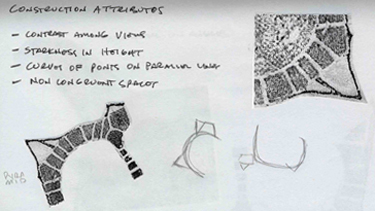 CONSTRUCTION ATTRIBUTES
- CONTRAST AMONG VIEWS
- STARKNESS IN HEIGHT
- CURVES OF PONTS ON PARALLEL LINES
- NON CONGRUENT SPACES